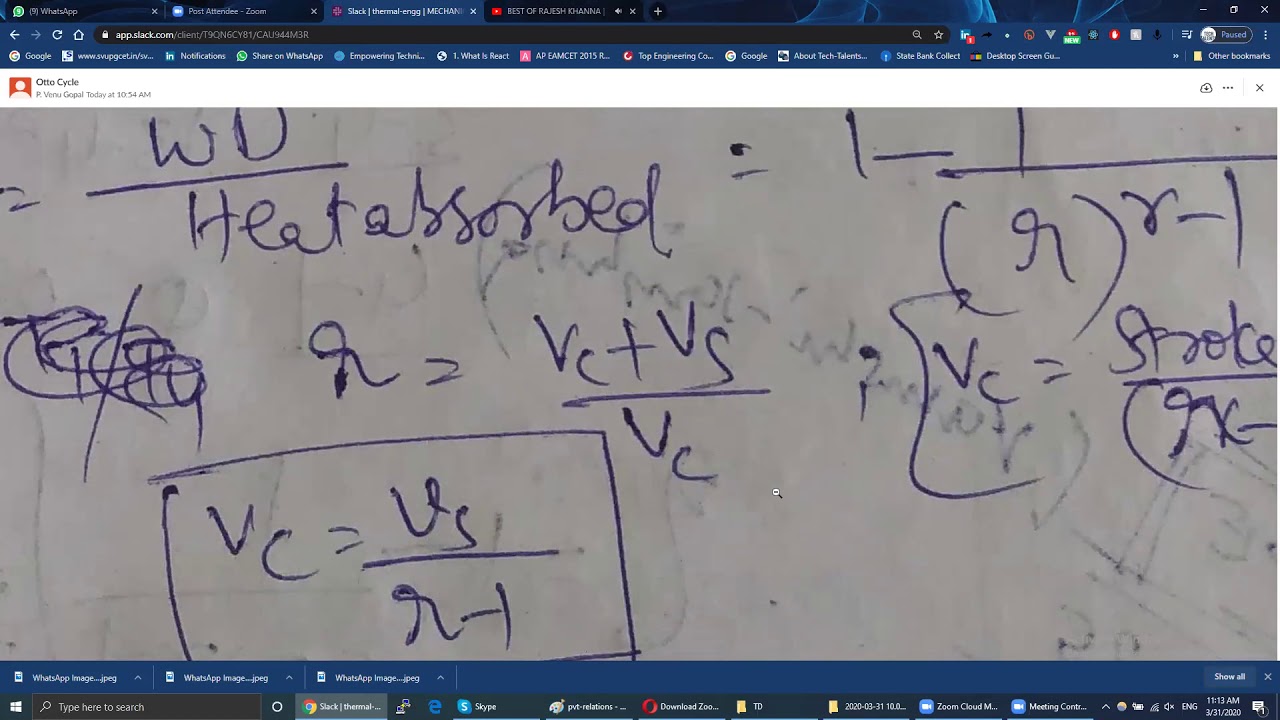 (9) WhatsApp
Post Attendee - Zoom
Slack | thermal-engg | MECHANI
BEST OF RAJESH KHANNA |
app.slack.com/client/T9QN6CY81/CAU944M3R
Paused
Google
www.svuppgcet.in/sv...
Notifications
Share on WhatsApp
Empowering Techni...
1. What Is React
AP EAMCET 2015 R...
Top Engineering Co...
Google
About Tech-Talents...
State Bank Collect
Desktop Screen Gu...
Other bookmarks
Otto Cycle
P. Venu Gopal Today at 10:54 AM
= WD / Heat absorbed = 1 - 1 / (r)^γ-1
r = Vc + Vs / Vc ; { Vc = Stroke / (r
Vc = Vs / r-1
WhatsApp Image....jpeg
WhatsApp Image....jpeg
WhatsApp Image....jpeg
Show all
Type here to search
Slack | thermal-...
Skype
pvt-relations - ...
Download Zoo...
TD
2020-03-31 10.0...
Zoom Cloud M...
Meeting Contr...
ENG
11:13 AM
3/31/2020